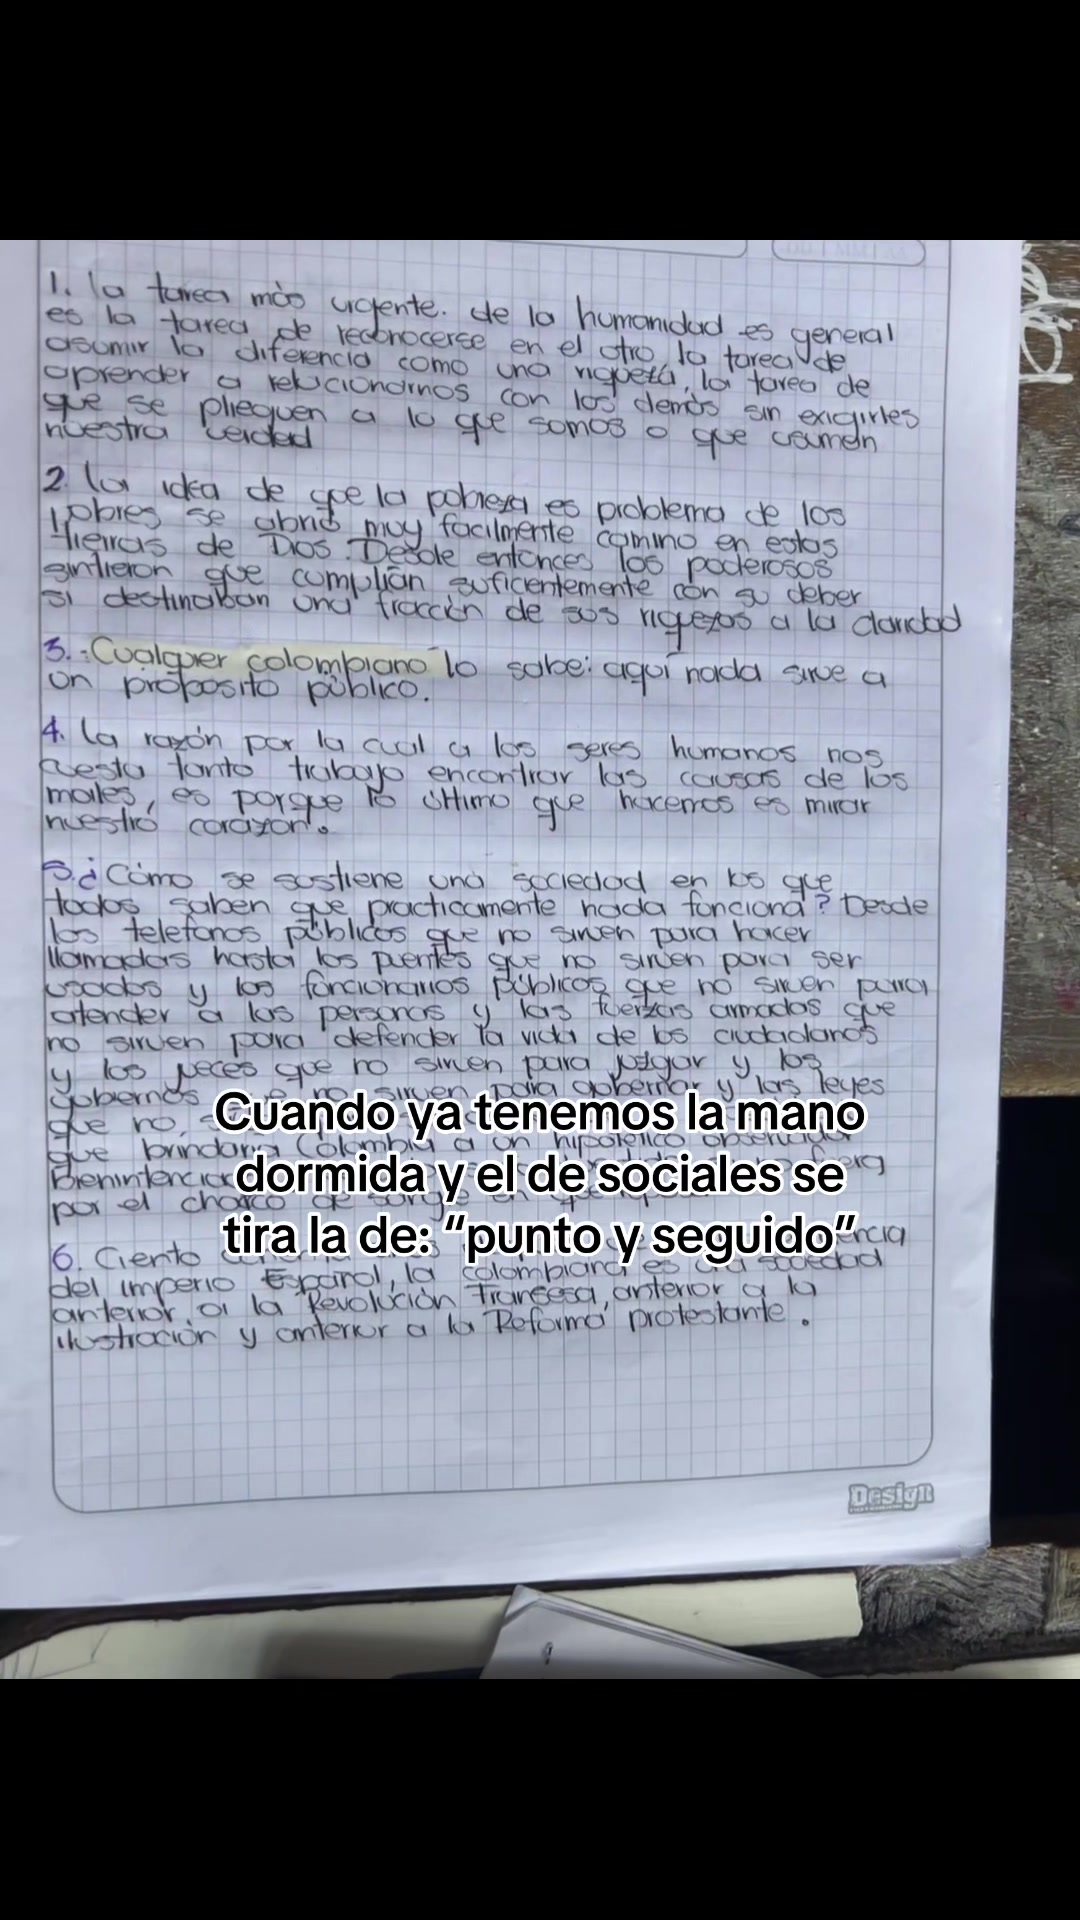 1. la tarea más urgente. de la humanidad es general
es la tarea de reconocerse en el otro, la tarea de
asumir la diferencia como una riqueza, la tarea de
aprender a relacionarnos con los demás sin exigirles
que se plieguen a lo que somos o que asumen
nuestra verdad
2. la idea de que la pobreza es problema de los
pobres se abrió muy facilmente camino en estas
tierras de Dios. Desde entonces los poderosos
sintieron que cumplían suficientemente con su deber
si destinaban una fracción de sus riquezas a la claridad
3. Cualquier colombiano lo sabe: aquí nada sirve a
un proposito público.
4. la razón por la cual a los seres humanos nos
cuesta tanto trabajo encontrar las causas de los
males, es porque lo último que hacemos es mirar
nuestro corazon.
5. ¿Cómo se sostiene una sociedad en los que
todos saben que practicamente nada funciona? Desde
los telefonos públicos que no sirven para hacer
llamadas hasta los puentes que no sirven para ser
usados y los funcionarios públicos que no sirven para
atender a las personas y las fuerzas armadas que
no sirven para defender la vida de los ciudadanos
y los jueces que no sirven para juzgar y los
gobiernos que no sirven para gobernar y las leyes
que no,
que brindaria Colombia a un hipotetico observador
por el charco de sangre en que
6. Ciento
del imperio Español, la colombiana es una sociedad
anterior a la Revolución francesa, anterior a la
ilustración y anterior a la Reforma protestante.
Cuando ya tenemos la mano
dormida y el de sociales se
tira la de: “punto y seguido”
Design